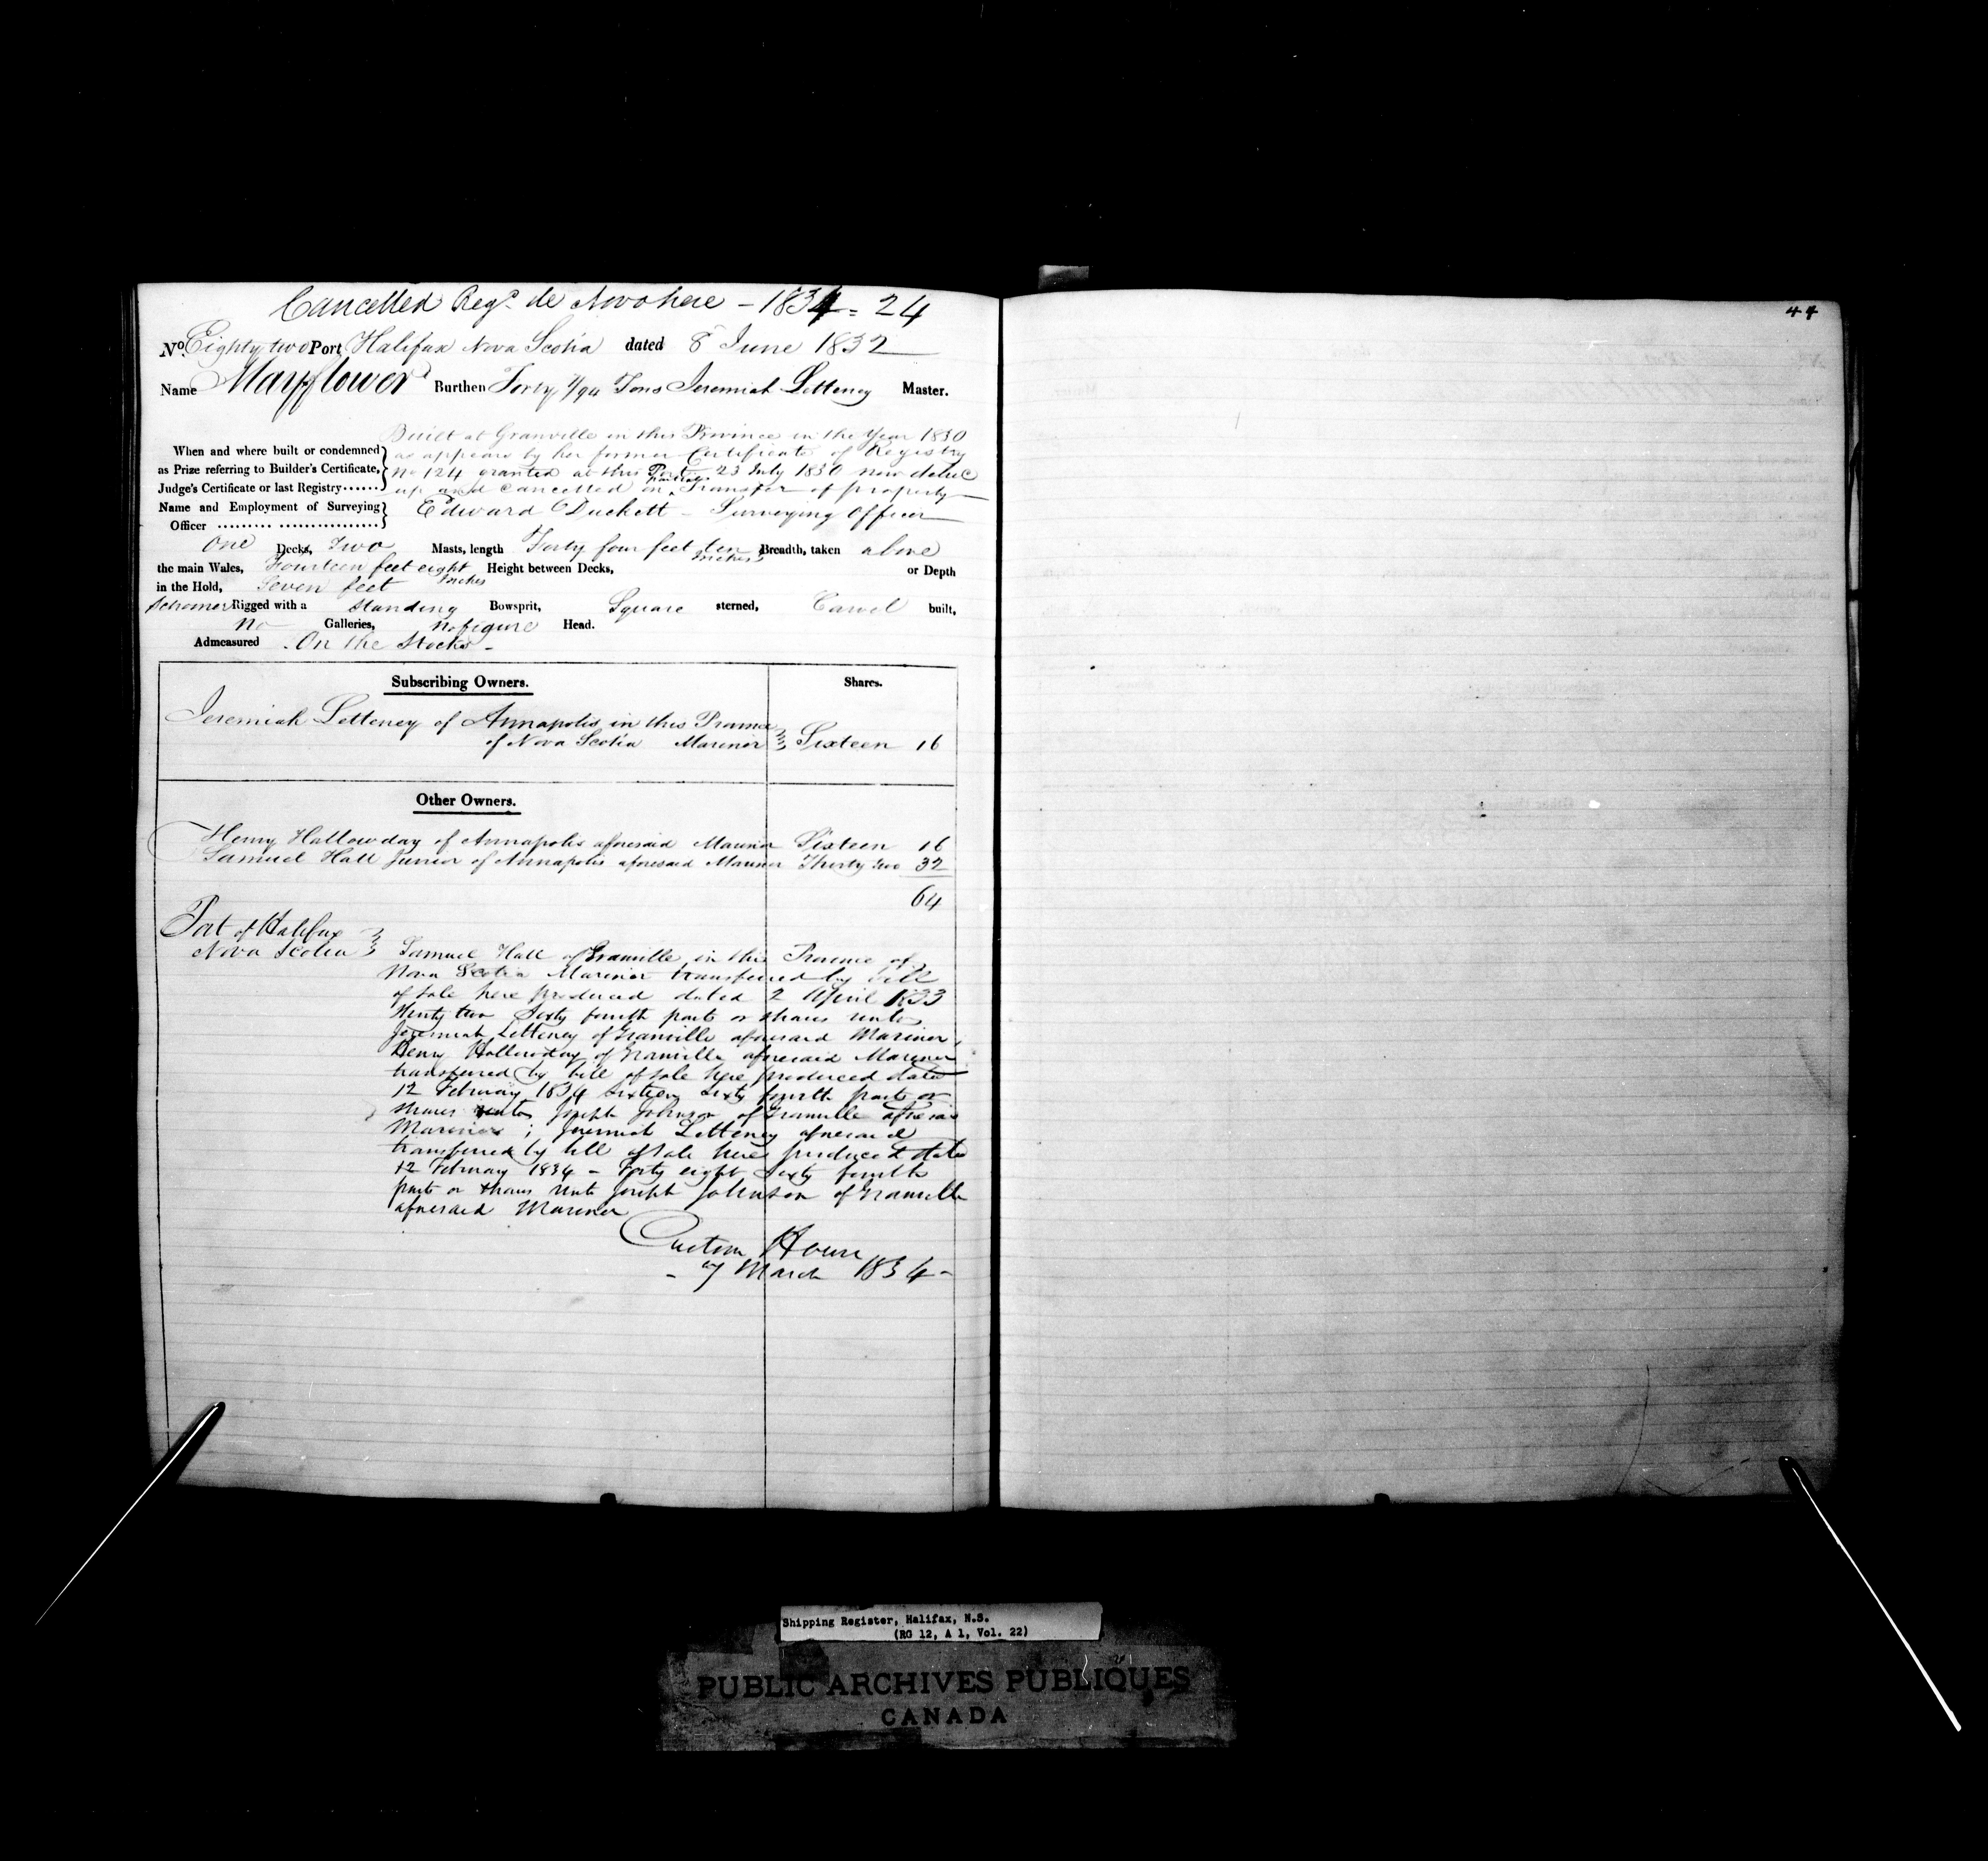 Cancelled Regd de Novo here - 1834 = 24
44
No. Eighty two Port Halifax Nova Scotia dated 8 June 1832
Name Mayflower Burthen Forty 7/94 Tons Jeremiah Letteney Master.
Built at Granville in this Province in the Year 1830
When and where built or condemned as appears by her former Certificate of Registry
as Prize referring to Builder's Certificate, No 124 granted at this Port 23 July 1830 now deliv
Judge's Certificate or last Registry...... up and cancelled on Transfer of property
Name and Employment of Surveying Edward Duckett - Surveying Officer
Officer ......... .................
One Decks, Two Masts, length Forty four feet ten Inches Breadth, taken above
the main Wales, Fourteen feet eight Inches Height between Decks, or Depth
in the Hold, Seven feet
Schooner Rigged with a Standing Bowsprit, Square sterned, Carvel built,
No Galleries, No figure Head.
Admeasured On the Stocks -
Subscribing Owners. Shares.
Jeremiah Letteney of Annapolis in this Province
of Nova Scotia Mariner Sixteen 16
Other Owners.
Henry Hallowday of Annapolis aforesaid Mariner Sixteen 16
Samuel Hall Junior of Annapolis aforesaid Mariner Thirty two 32
64
Port of Halifax
Nova Scotia Samuel Hall of Granville in this Province of
Nova Scotia Mariner transferred by bill
of sale here produced dated 2 April 1833
Thirty two Sixty fourth parts or shares unto
Jeremiah Letteney of Granville aforesaid Mariner,
Henry Hollowday of Granville aforesaid Mariner
transferred by bill of sale here produced dated
12 February 1834 Sixteen Sixty fourth parts or
shares unto Joseph Johnson of Granville aforesaid
Mariner; Jeremiah Letteney aforesaid
transferred by bill of sale here produced dated
12 February 1834 - Forty eight Sixty fourth
parts or shares unto Joseph Johnson of Granville
aforesaid Mariner
Custom House
- 7 March 1834 -
Shipping Register, Halifax, N.S.
(RG 12, A 1, Vol. 22)
PUBLIC ARCHIVES PUBLIQUES
CANADA